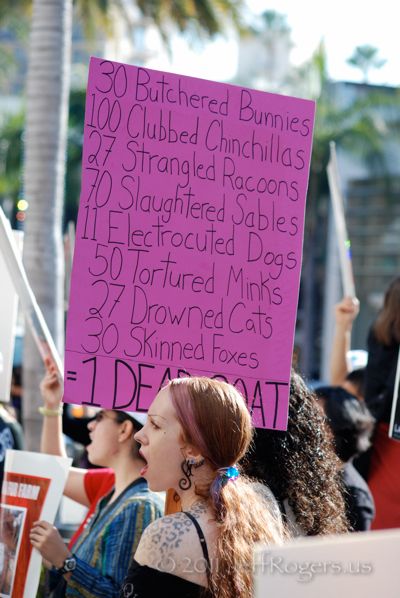 30 Butchered Bunnies
100 Clubbed Chinchillas
27 Strangled Racoons
70 Slaughtered Sables
11 Electrocuted Dogs
50 Tortured Minks
27 Drowned Cats
30 Skinned Foxes
= 1 DEAD COAT
© 2011 JeffRogers.us